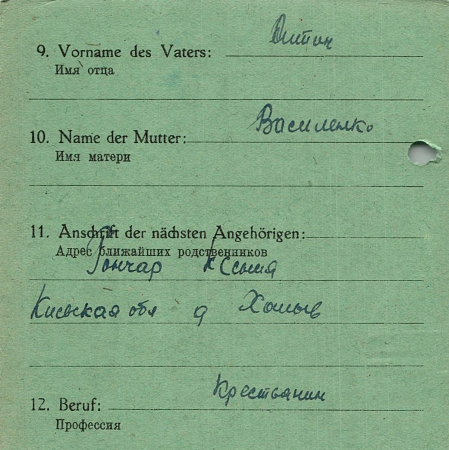 9. Vorname des Vaters: Антон
Имя отца
10. Name der Mutter: Василенко
Имя матери
11. Anschrift der nächsten Angehörigen:
Адрес ближайших родственников
Гончар Ксенія
Киевская обл д Халыв
12. Beruf: Крестьянин
Профессия